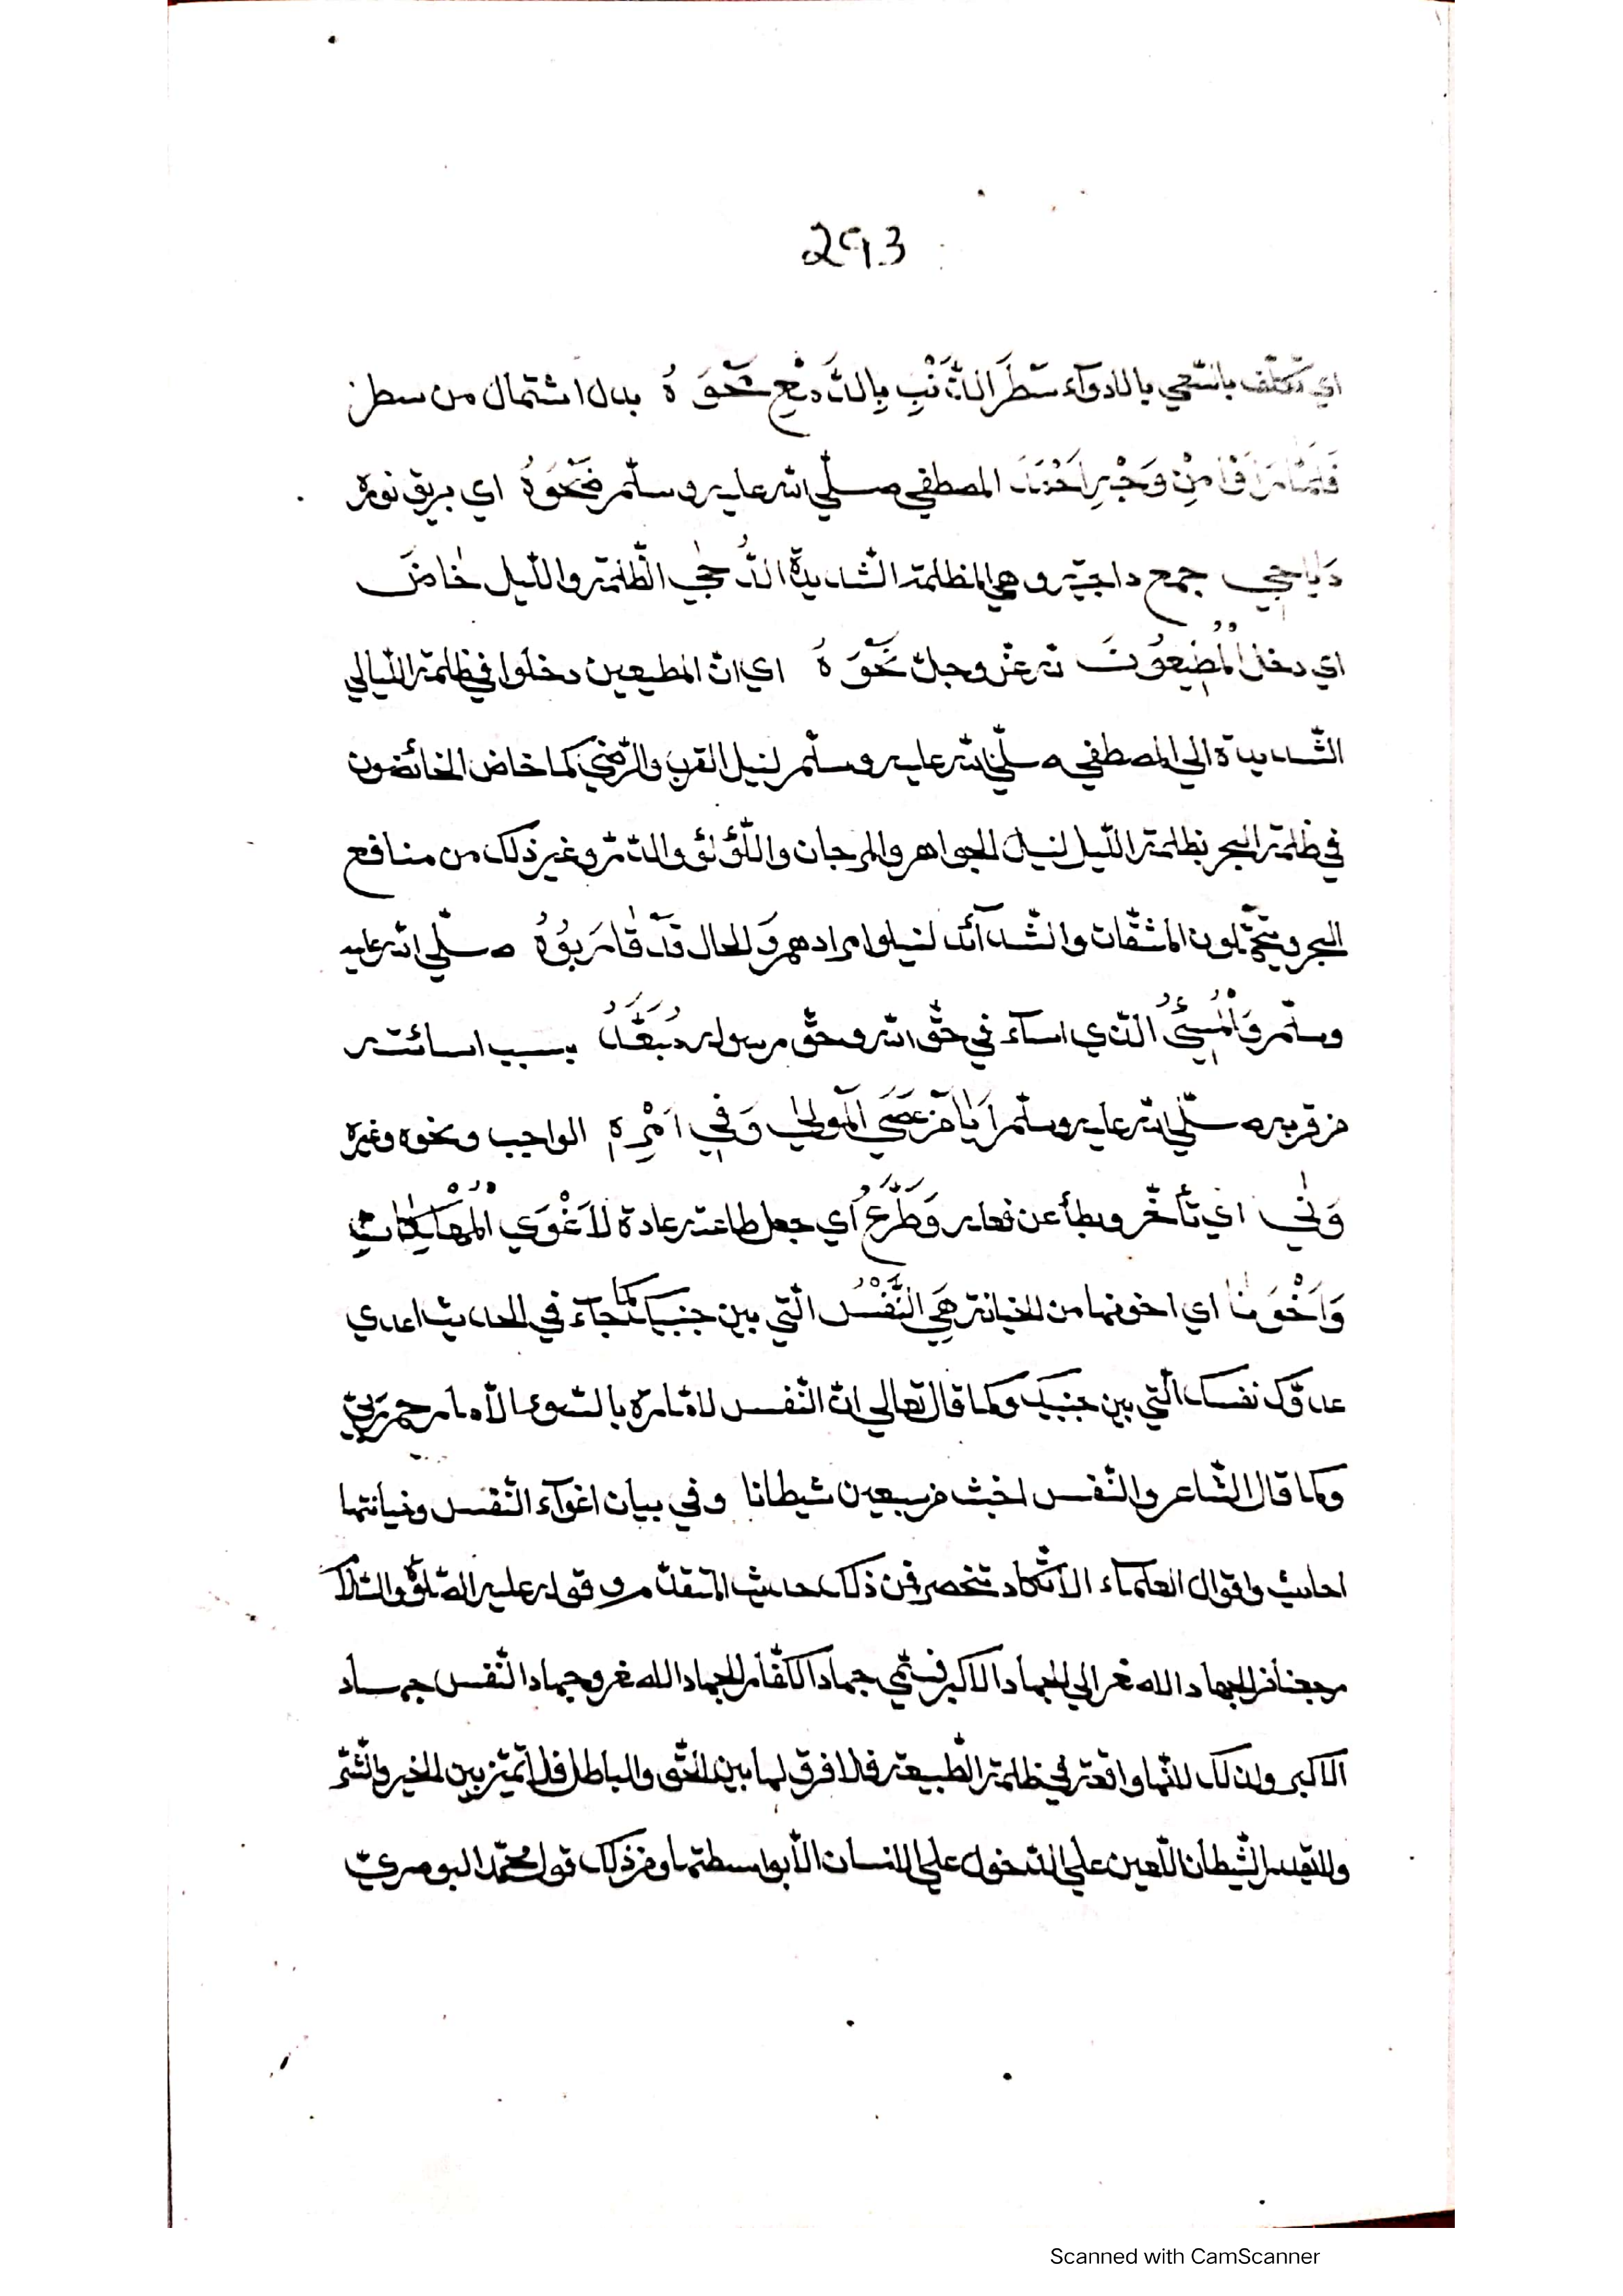 293
اي تكلف بالسّعي بالادوآء سَطَرَ الذَّنْبِ بِالدَّمْعِ مَحْوَهُ بدل اشتمال من سطر
فَلَمَّا مِنْ وَجْهِ اَحْمَدَ المصطفي صلّي الله عليه وسلّم نَحْوَهُ اي بريق نوره
دَيَاجِي جمع داجية وهي المظلمة الشّديدة الدُّجٰي الظّلمة والليل خَاضَ
اي دخل الْمُطِيعُونَ لله عزّ وجلّ نَحْوَهُ اي انّ المطيعين دخلوا في ظلمة الليالي
الشّديدة الي المصطفي صلّي الله عليه وسلّم لنيل القرب والرّضي كما خاض الخائضون
في ظلمة البحر بظلمة الليل لنيل الجواهر والمرجان واللّؤلؤ والدّرّ وغير ذلك من منافع
البحر ويتحمّلون المشقّات والشّدآئد لنيلوا مرادهم وَالحال قَدْ قَارَبُوهُ صلّي الله عليه
وسلّم وَالْمُسِيْئُ الّذي اسآء في حقّ الله وحقّ رسوله مُبَعَّدُ بسبب اسائته
من قربه صلّي الله عليه وسلّم اَيَا مَنْ عَصَي الْمَوْلٰي وَفِي اَمْرِهِ الواجب ونحوه وغيره
وَنٰي اي تأخّر وبطأ عن فعله وَطَوَّعُ اي جعل طاعته عادة لاَغْوَي الْمُهْلِكَاتِ
وَاَخْوَنَا اي اخونها من الخيانة هِيَ النَّفْسُ الّتي بين جنبيك كما جآء في الحديث اعدي
عدوّك نفسك الّتي بين جنبيك وكما قال تعالي انّ النّفس لامّارة بالسّوء الاّ ما رحم ربّي
وكما قال الشّاعر والنّفس اخبث من سبعين شيطانا وفي بيان اغوآء النّفس وخيانتها
احاديث واقوال العلمآء لا تكاد تنحصر فمن ذلك حديث المتقدّم وقوله عليه الصّلوة والسّلام
رجعنا من الجهاد الاصغر الي الجهاد الاكبر فسمّي جهاد الكفّار الجهاد الاصغر وجهاد النّفس جهاد
الاكبر وذلك لانّها واقعة في ظلمة الطّبيعة فلا فرق لها بين الحقّ والباطل فلا تميّز بين الخير والشّرّ
ولا يقدر الشّيطان اللّعين علي الدّخول علي الانسان الاّ بواسطتها ومن ذلك قول محمّد البوصريّ
Scanned with CamScanner